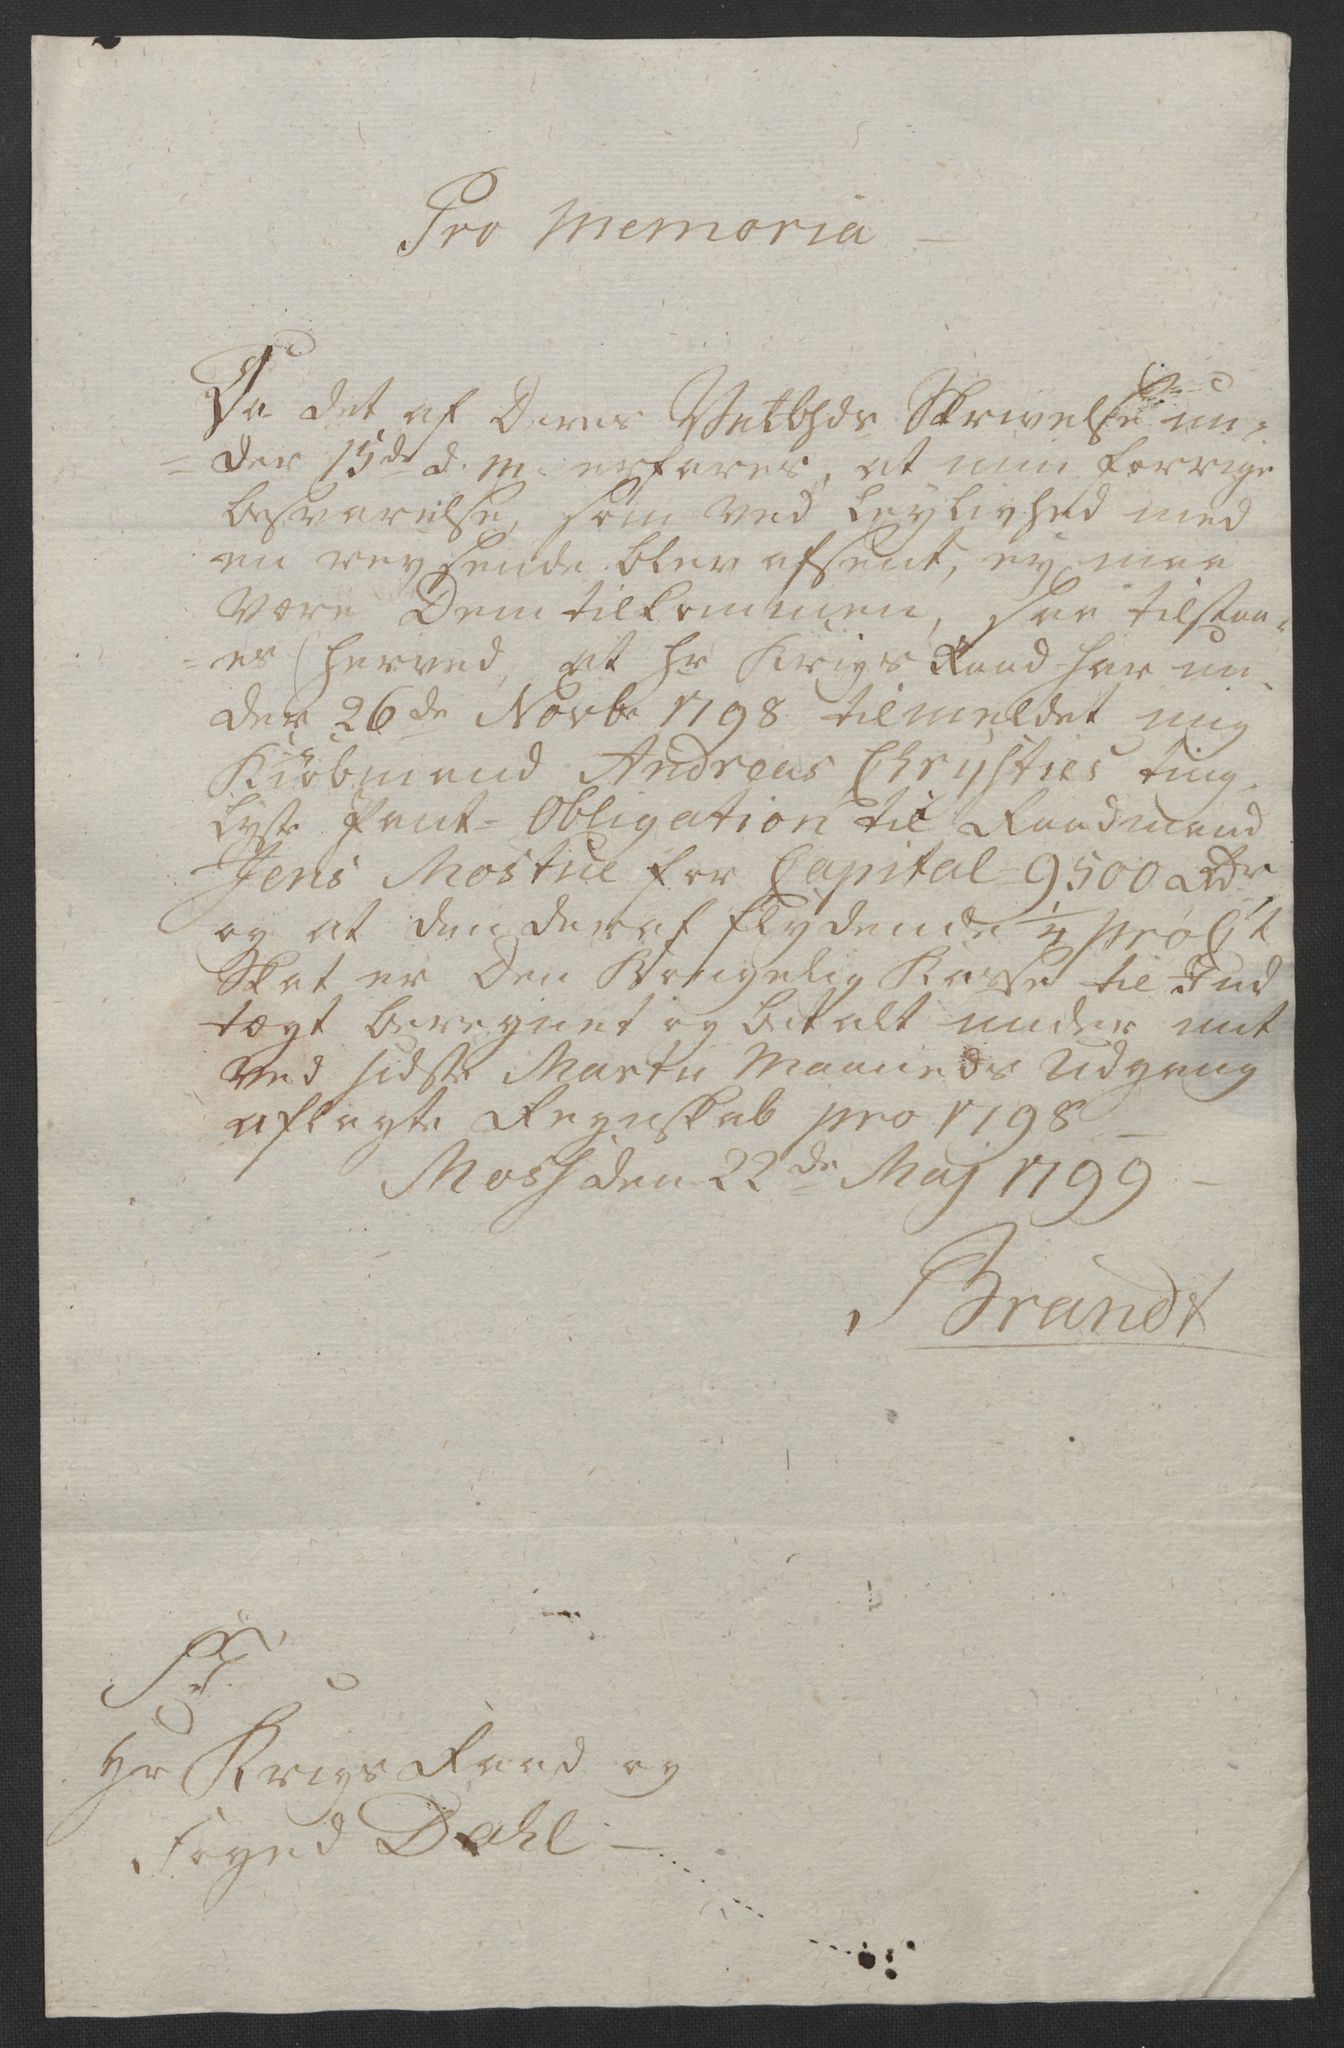 Pro Memoria
Da det af Deres Velbhds Skrivelse un-
= der 15de d. M. erfares, at min forrige
besvarelse, som ved Leylighed med
en reysende blev afsent, ey maa
være Dem tilkommen, saa tilstaa-
= es herved, at Hr Krigs Raad har un-
der 26de Novbr 1798 tilmeldet mig
Kiøbmand Andreas Chrysties ting-
lyste Pant-Obligation til Raadmand
Jens Mostue for Capital 9500 Rdr
og at den deraf flydende 1/4 proCt
Skat er den Kongelig Kasse til Ind
tægt beregnet og betalt under mit
ved sidste Martii Maaneds Udgang
aflagte Regnskab pro 1798
Moss den 22de Maj 1799
Brandt
S. T.
Hr Krigs Raad og
Foged Dahl